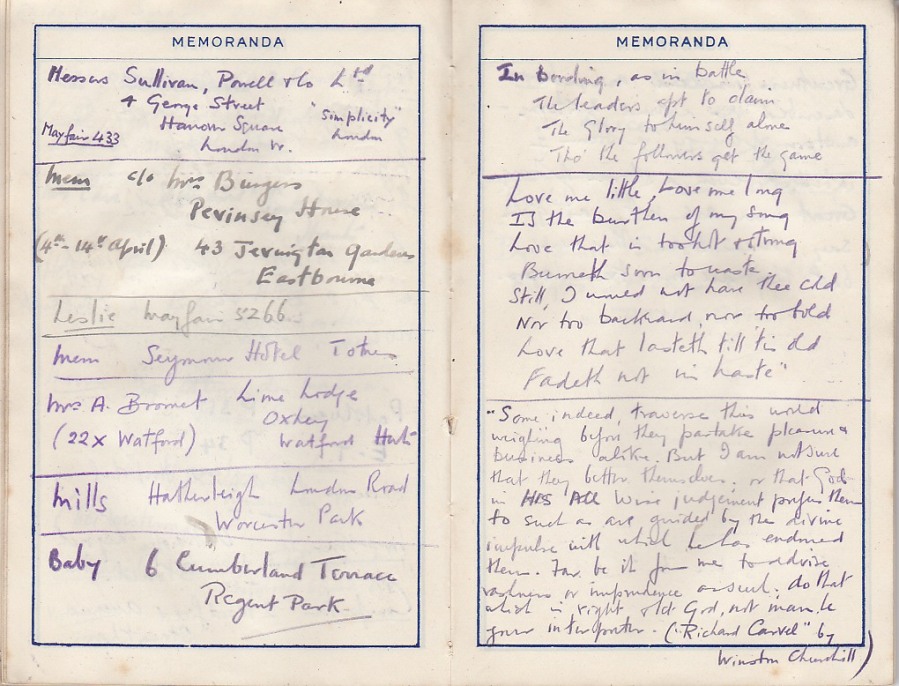 MEMORANDA
Messrs Sullivan, Powell & Co Ltd
4 George Street
Hanover Square
London W.
"Simplicity"
London
Mayfair 433
Mem c/o Mrs Burgess
Pevinsey House
(4th - 14th April) 43 Jevington Gardens
Eastbourne
Leslie Mayfair 5266
Mem Seymour Hotel Totnes
Mrs A. Bromet Lime Lodge
Oxhey
(22 x Watford) Watford Herts
Mills Hatherleigh London Road
Worcester Park
Baby 6 Cumberland Terrace
Regent Park
MEMORANDA
In bonding, as in battle
The leaders apt to claim
The Glory to himself alone
Tho' the followers get the game
Love me little, Love me long
Is the burthen of my song
Love that is too hot & strong
Burneth soon to waste.
Still, I would not have thee cold
Nor too backward, nor too bold
Love that lasteth till tis old
Fadeth not in haste"
"Some, indeed, traverse this world
weighing before they partake pleasure &
business alike. But I am not sure
that they better themselves. or that God
in HIS ALL wise judgement prefers them
to such as are guided by the divine
impulse with which he has endowed
them. Far be it from me to advise
rashness or imprudence as such; do that
which is right & let God, not man, be
your interpreter. ("Richard Carvel" by
Winston Churchill)